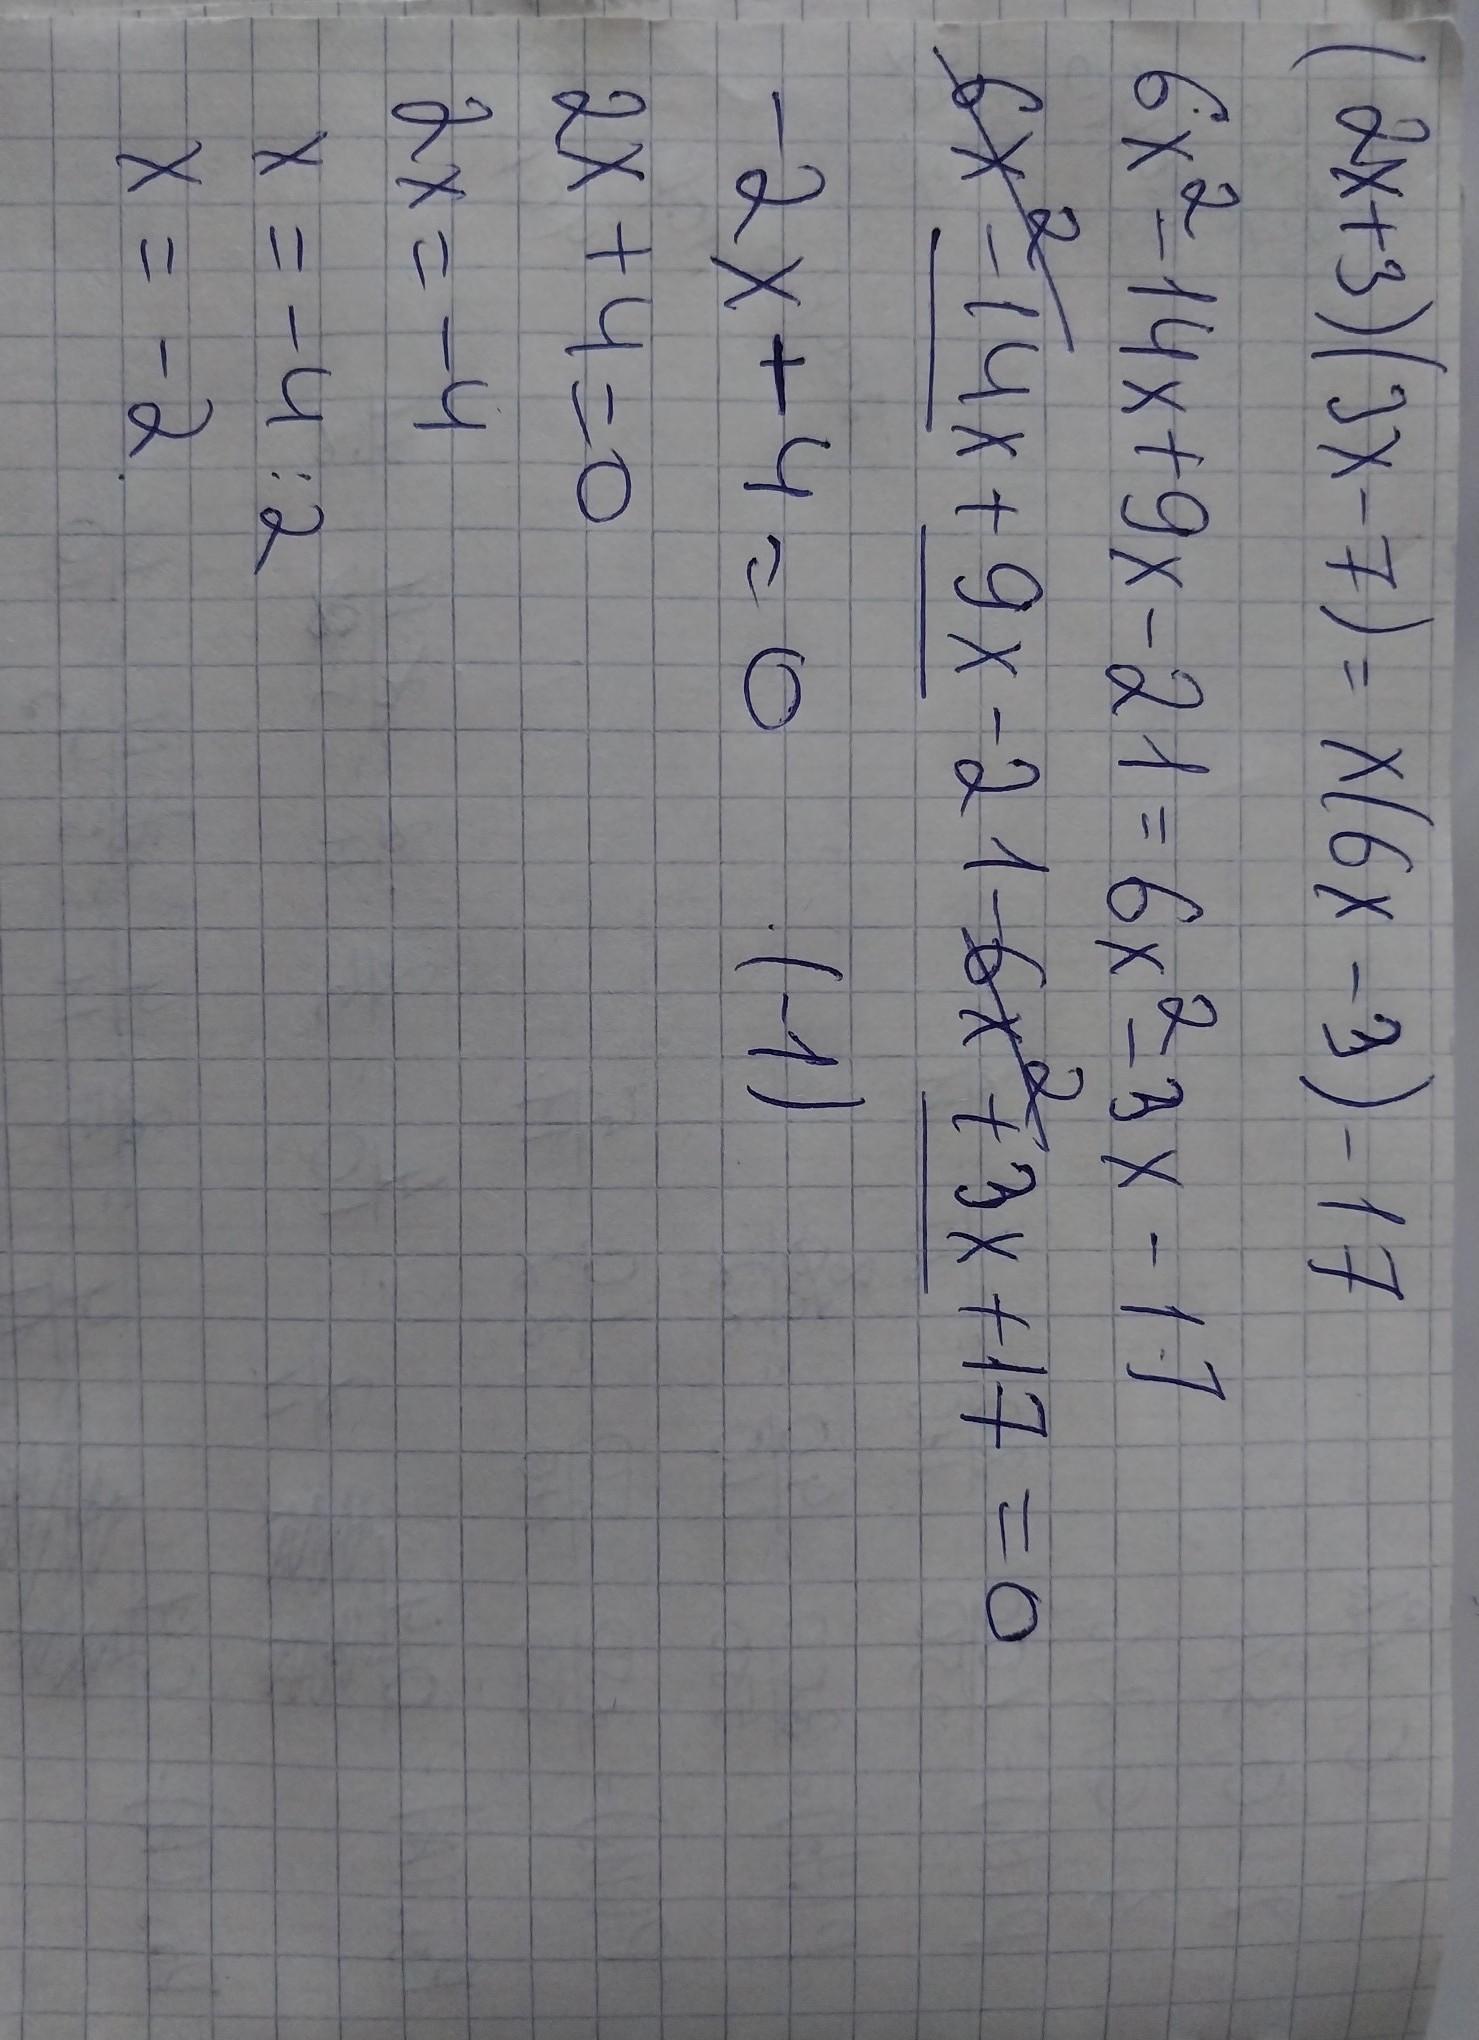 (2x+3)(3x-7)=x(6x-3)-17
6x²-14x+9x-21=6x²-3x-17
6x²-14x+9x-21-6x²+3x+17=0
-2x+4=0 ·(-1)
2x+4=0
2x=-4
x=-4:2
x=-2.